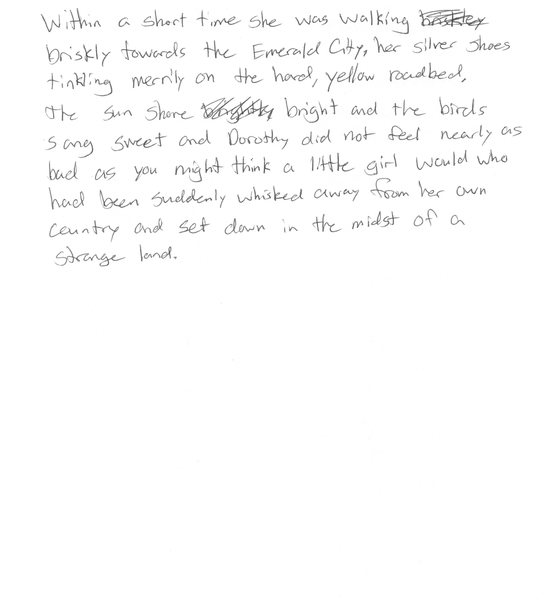 Within a short time she was walking
briskly towards the Emerald City, her silver shoes
tinkling merrily on the hard, yellow roadbed,
the sun shone bright and the birds
sang sweet and Dorothy did not feel nearly as
bad as you might think a little girl would who
had been suddenly whisked away from her own
country and set down in the midst of a
strange land.